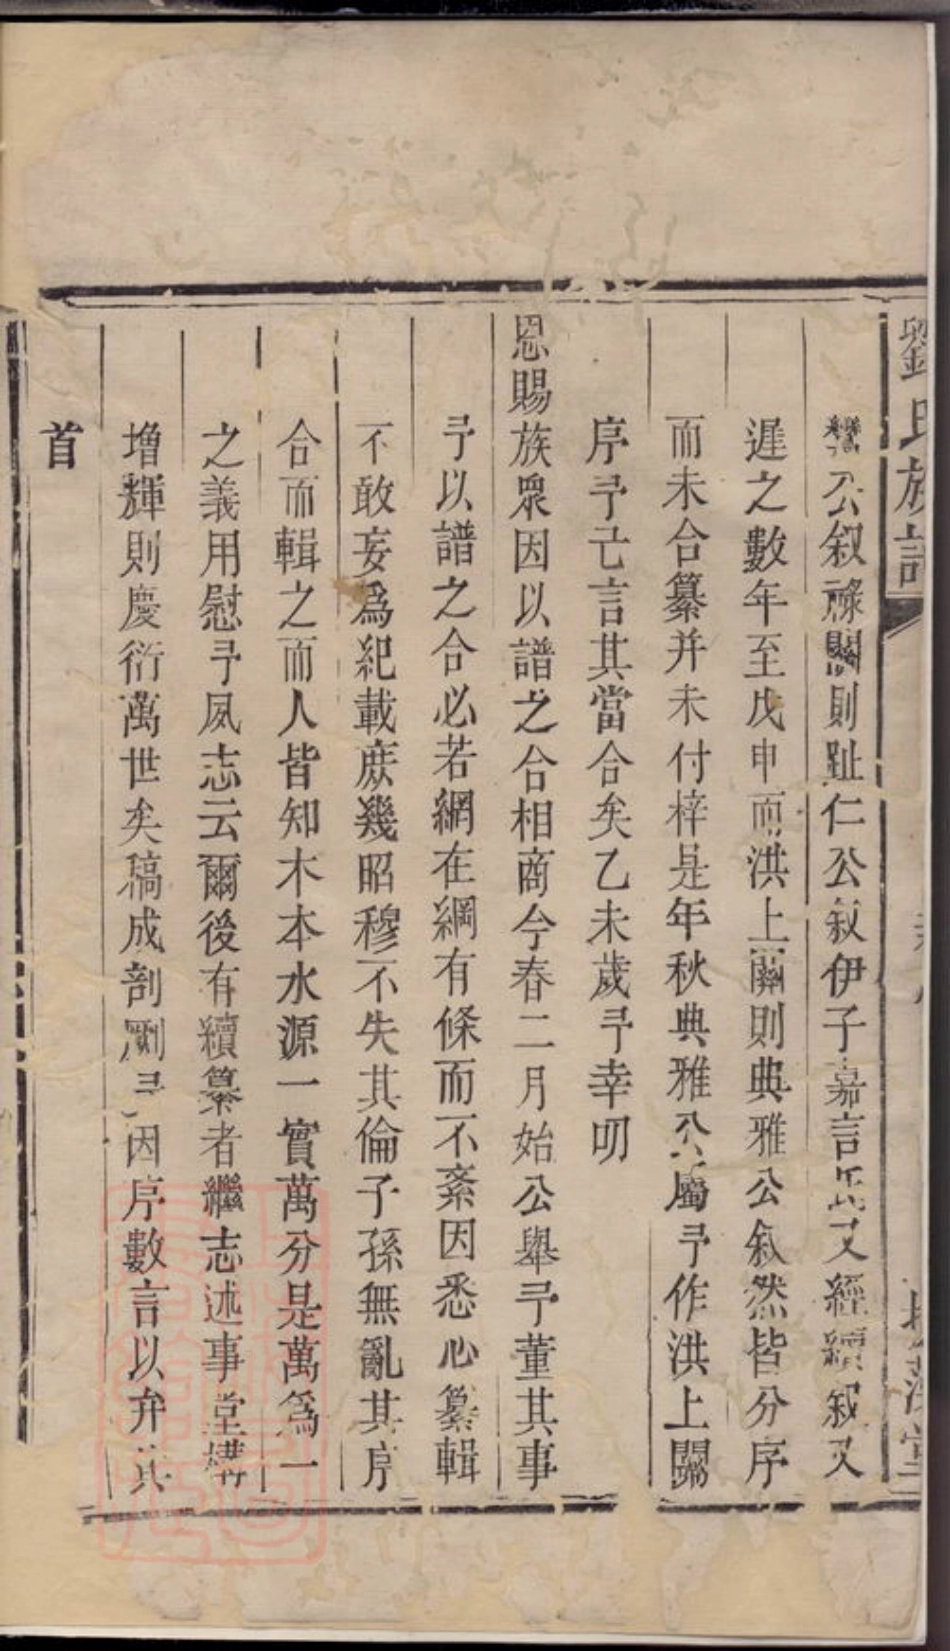 劉氏族譜
公叙祿鬮則趾仁公叙伊子嘉言氏又經續叙又
遲之數年至戊申而洪上鬮則典雅公叙然皆分序
而未合纂并未付梓是年秋典雅公屬予作洪上鬮
序予已言其當合矣乙未歲予幸叨
恩賜族衆因以譜之合相商今春二月始公舉予董其事
予以譜之合必若網在綱有條而不紊因悉心纂輯
不敢妄爲紀載庶幾昭穆不失其倫子孫無亂其序
合而輯之而人皆知木本水源一實萬分是萬爲一
之義用慰予夙志云爾後有續纂者繼志述事堂構
增輝則慶衍萬世矣稿成剖劂予因序數言以弁其
首